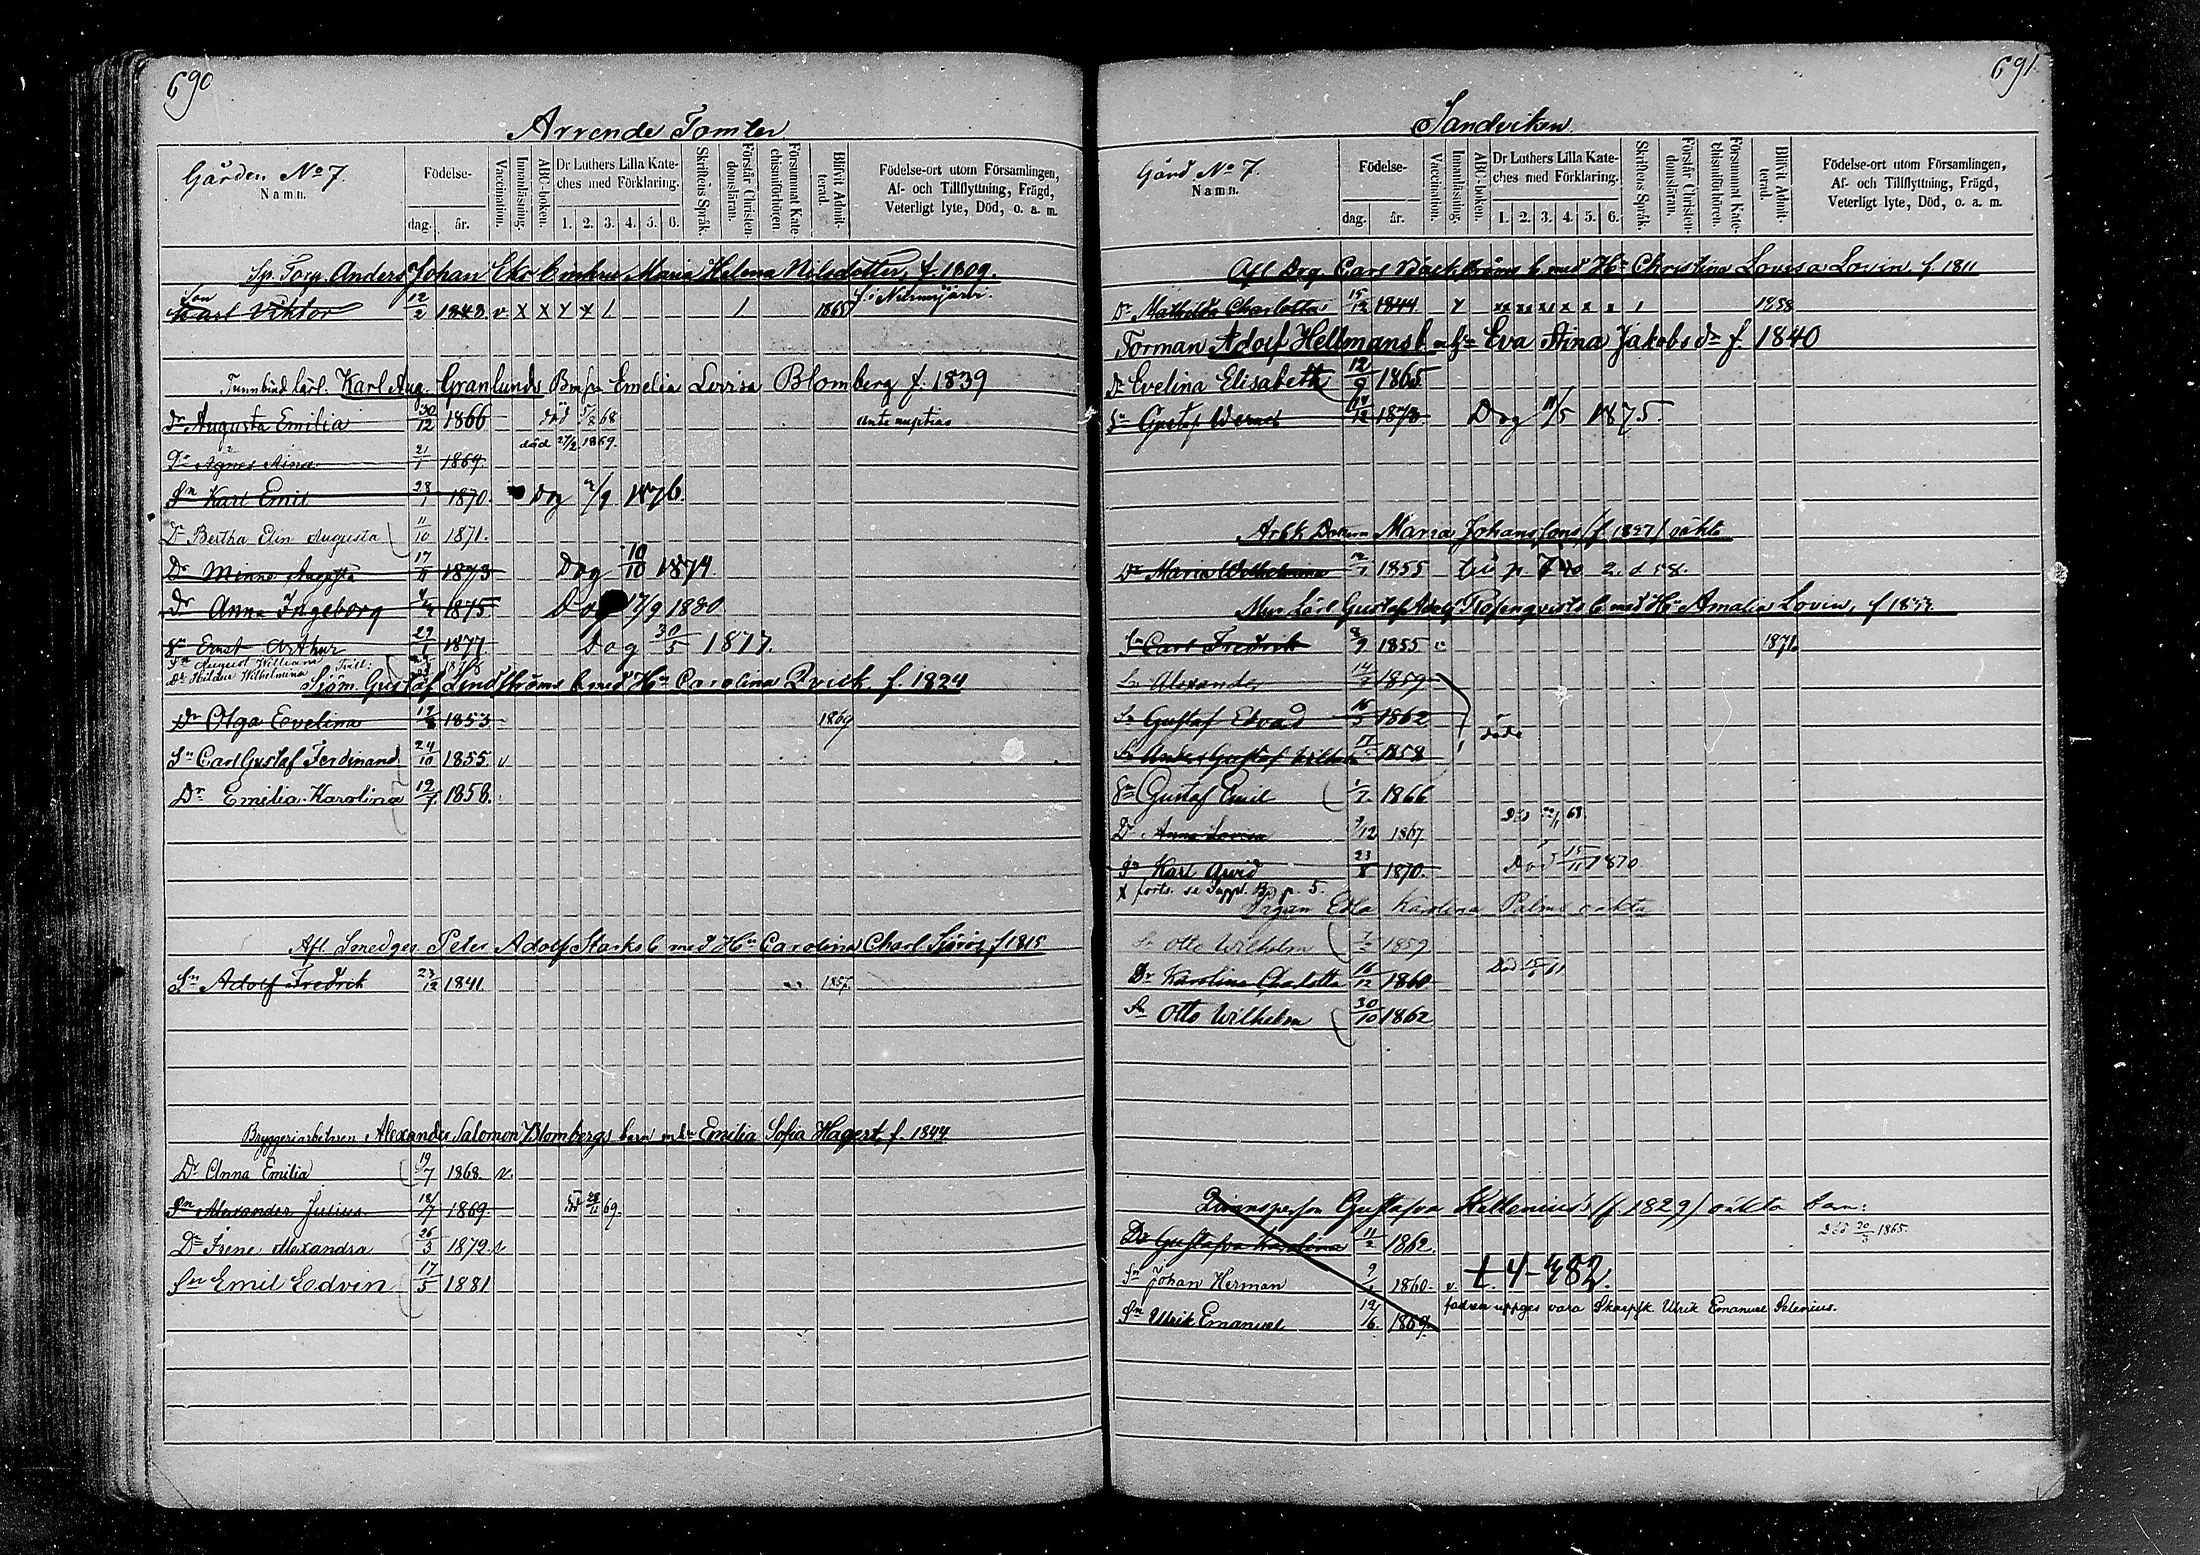 690
Arrende Tomter
Gården No 7.
Namn.
Födelse-
dag. år.
Vaccination.
Innanläsning.
ABC-boken.
Dr Luthers Lilla Kate-
ches med Förklaring.
1. 2. 3. 4. 5. 6.
Skriftens Språk.
Förstår Christen-
domsläran.
Försummat Kate-
chismiförhören.
Blifvit Admit-
terad.
Födelse-ort utom Församlingen,
Af- och Tillflyttning, Frägd,
Veterligt lyte, Död, o. a. m.
Anders Johan Maria Helena Nilsdotter, f. 1809.
Son
Karl Viktor 12/2 1843 v x x x x / / 1865
Karl Aug. Granlunds Emelia Lovisa Blomberg f. 1839
Dr Augusta Emilia 30/12 1866 död 5/8 68 ante nuptias
Dr Agnes Aina 21/1 1869. död 27/2 1869.
Sn Karl Emil 28/1 1870. Dog 2/9 1876.
Dr Bertha Elin Augusta 11/10 1871.
Dr Minna Augusta 17/11 1873 Dog 10/10 1874
Dr Anna Ingeborg 1875 Dog 17/9 1880
Sn Ernst Arthur 29/1 1877 Dog 30/5 1877.
Sn August William
Dr Hilda Wilhelmina Tvill:
Sjöm. Gustaf Lindströms b med Hu Carolina Qvick f. 1824
Dr Olga Evelina 19/8 1853 1869
Sn Carl Gustaf Ferdinand 24/10 1855 v
Dr Emilia Karolina 19/7 1858.
Afl. Smedges. Peter Adolf Starks b med Hu Carolina Charl. f 1815
Sn Adolf Fredrik 23/12 1841. 1857.
Bryggeriarbetaren Alexander Salomon Blombergs barn Emilia Sofia Hagert f. 1844
Dr Anna Emilia 19/7 1868. v.
Sn Alexander Julius 18/7 1869 död 28/11 69.
Dr Irene Alexandra 26/3 1879. v
Sn Emil Edvin 17/5 1881
691
Sandviken
Gård No 7.
Namn.
Födelse-
dag. år.
Vaccination.
Innanläsning.
ABC-boken.
Dr Luthers Lilla Kate-
ches med Förklaring.
1. 2. 3. 4. 5. 6.
Skriftens Språk.
Förstår Christen-
domsläran.
Försummat Kate-
chismiförhören.
Blifvit Admit-
terad.
Födelse-ort utom Församlingen,
Af- och Tillflyttning, Frägd,
Veterligt lyte, Död, o. a. m.
Afl Drg. Carl Bäckströms b med Hu Christina Lovisa Lovin f 1811
Dr Mathilda Charlotta 15/12 1844 1858
Forman Adolf Hellmans b Eva Aina Jakobs dr f. 1840
Dr Evelina Elisabeth 12/9 1865
Sn Gustaf Werner 1873 Dog 11/5 1875.
Maria Johanssons oäkta
Dr Maria Wilhelmina 1855
Gustaf Adolf Rosenqvists b med Hu Amalia Lovin,
Sn Carl Fredrik 8/9 1855 1871.
Sn Alexander 1859
Sn Gustaf Edvard 1862 döda
Sn Anders Gustaf Wilhelm 1858
Sn Gustaf Emil 1866
Dr Anna Lovisa 9/12 1867
Sn Karl Arvid 23/8 1870. Död 15/11 1870
x forts. se Suppl. Bd p. 5.
Pigan Edla Karolina Palms oäkta
Sn Otto Wilhelm 1859
Dr Karolina Charlotta 16/12 1860
Sn Otto Wilhelm 30/10 1862
Qvinnsperson Gustafva Kallenius's (f. 1829) oäkta barn:
Dr Gustafva Karolina 11/2 1862 Död 20/3 1865
Sn Johan Herman 1860. v.
fadren uppges vara Ulrik Emanuel Selenius.
Sn Ulrik Emanuel 12/6 1869.